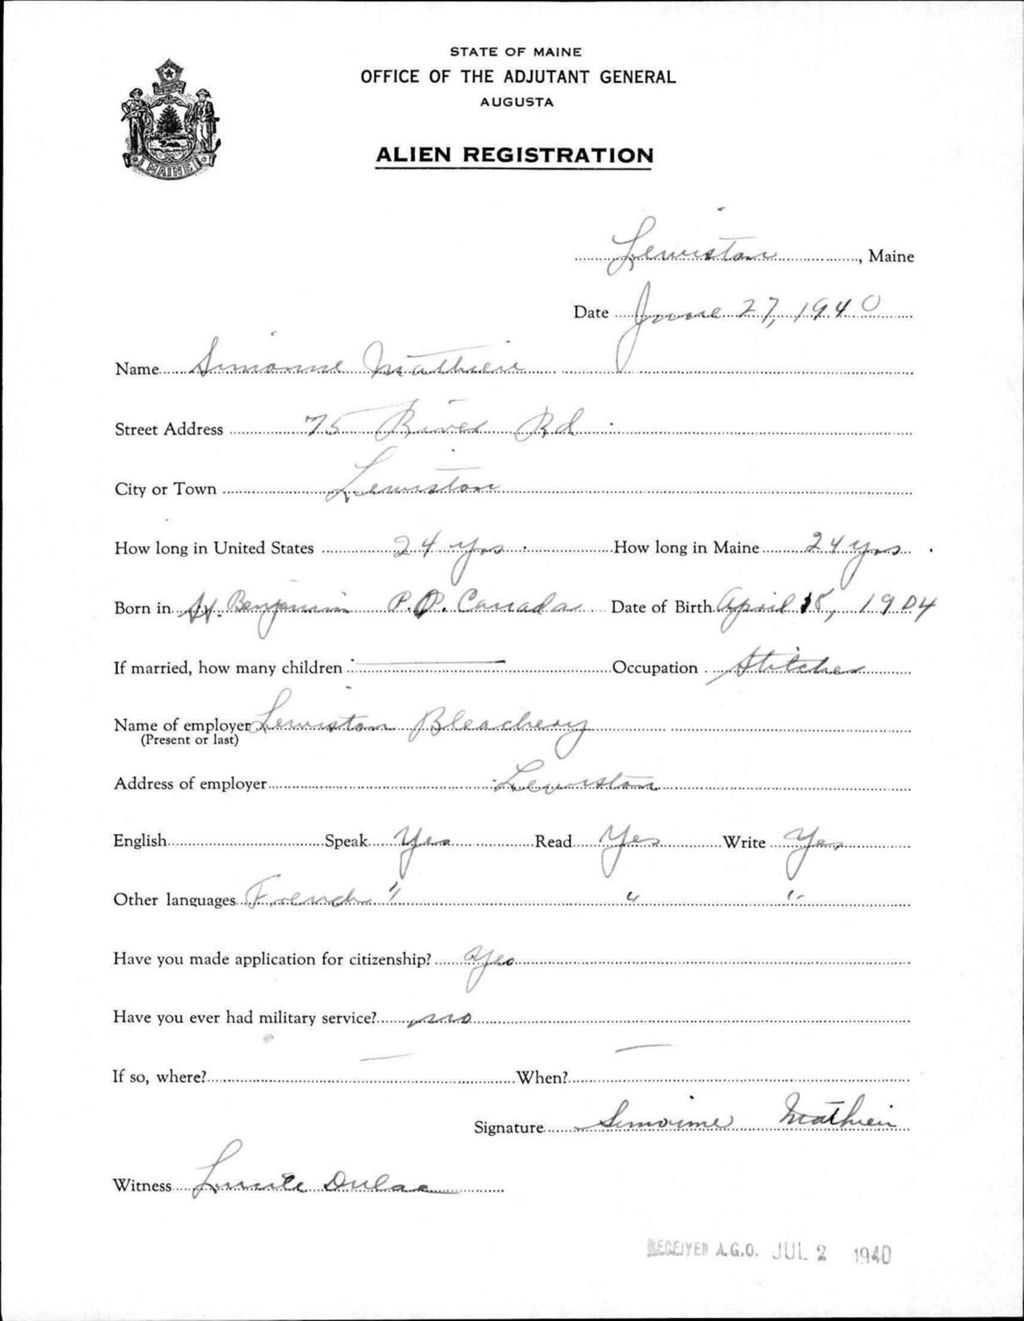 STATE OF MAINE
OFFICE OF THE ADJUTANT GENERAL
AUGUSTA
ALIEN REGISTRATION
MAINE
Lewiston, Maine
Date June 27, 1940
Name Simonne Mathieu
Street Address 75 River Rd.
City or Town Lewiston
How long in United States 24 yrs. How long in Maine 24 yrs.
Born in St. Benjamin P.P. Canada Date of Birth April 18, 1904
If married, how many children — Occupation Stitcher
Name of employer Lewiston Bleachery
(Present or last)
Address of employer Lewiston
English Speak Yes Read Yes Write Yes
Other languages French " " "
Have you made application for citizenship? Yes
Have you ever had military service? no
If so, where? — When? —
Signature Simonne Mathieu
Witness Lucile Dulac
RECEIVED A.G.O. JUL 2 1940